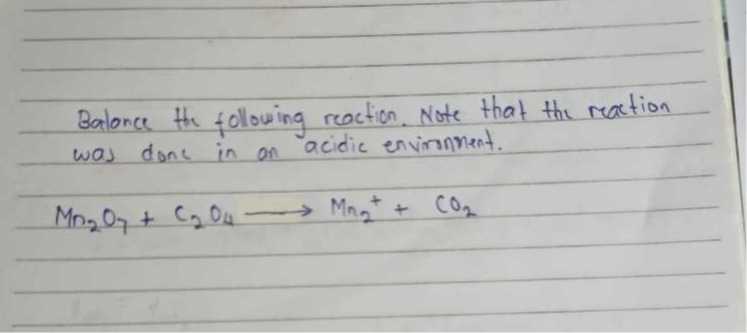 Balance the following reaction. Note that the reaction
was done in an acidic environment.
Mn₂O₇ + C₂O₄ ⟶ Mn₂⁺ + CO₂